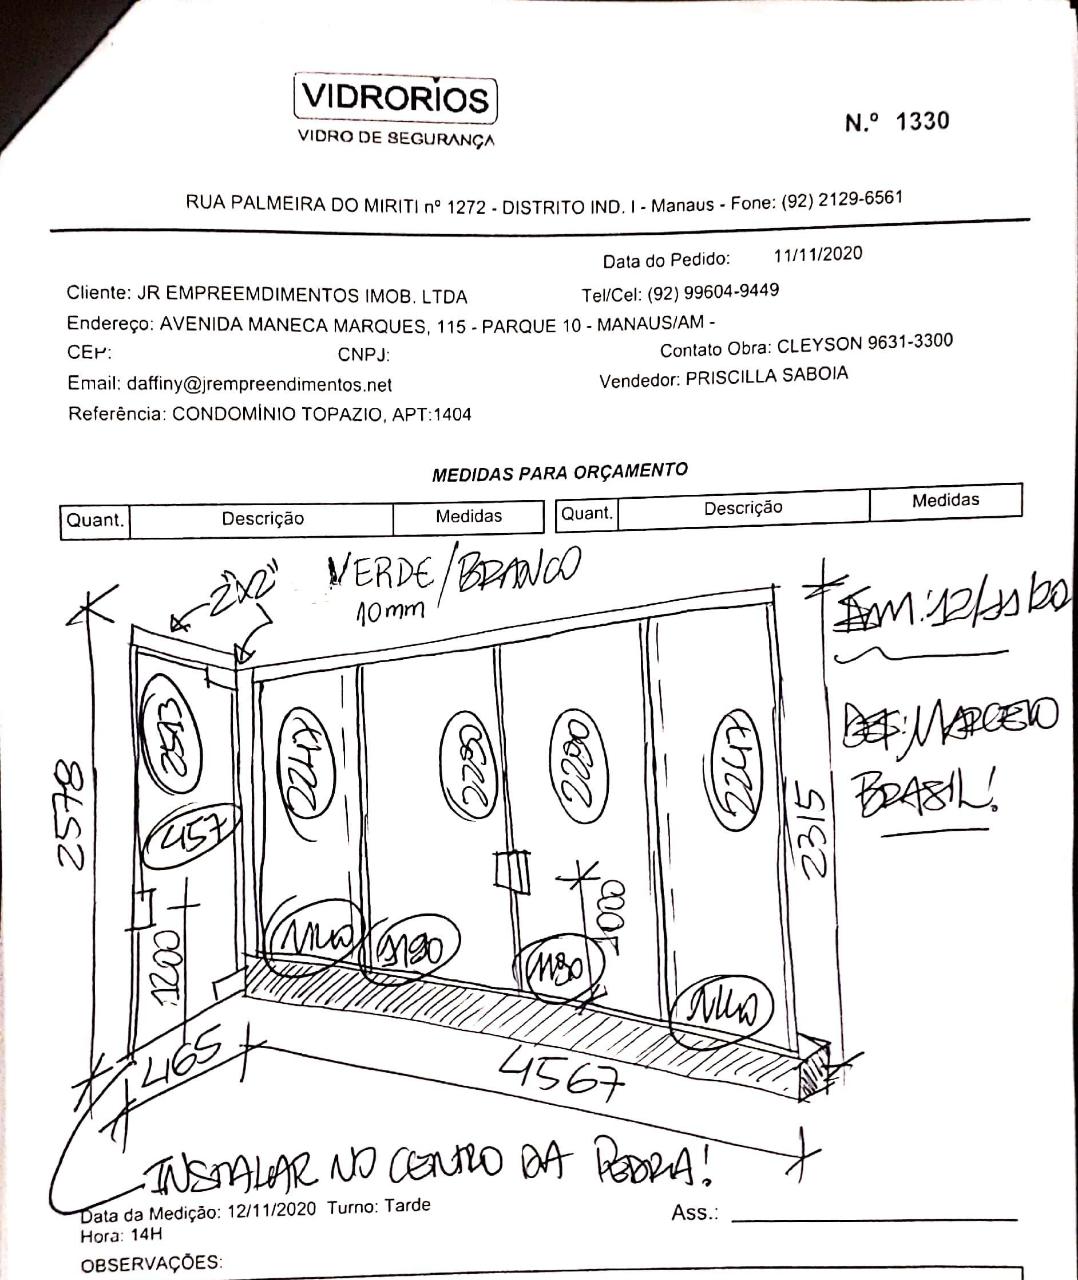 VIDRORIOS
VIDRO DE SEGURANÇA
N.º 1330
RUA PALMEIRA DO MIRITI nº 1272 - DISTRITO IND. I - Manaus - Fone: (92) 2129-6561
Data do Pedido: 11/11/2020
Cliente: JR EMPREEMDIMENTOS IMOB. LTDA Tel/Cel: (92) 99604-9449
Endereço: AVENIDA MANECA MARQUES, 115 - PARQUE 10 - MANAUS/AM -
CEP: CNPJ: Contato Obra: CLEYSON 9631-3300
Email: daffiny@jrempreendimentos.net Vendedor: PRISCILLA SABOIA
Referência: CONDOMÍNIO TOPAZIO, APT:1404
MEDIDAS PARA ORÇAMENTO
Quant. Descrição Medidas Quant. Descrição Medidas
2"X2" VERDE/BRANCO
10mm
EM: 12/11/20
MARCELO
BRASIL!
2578
2247
2290
2290
2247
2315
457
1200
1190
1190
1000
465
4567
INSTALAR NO CENTRO DA PEDRA!
Data da Medição: 12/11/2020 Turno: Tarde
Ass.:
Hora: 14H
OBSERVAÇÕES: